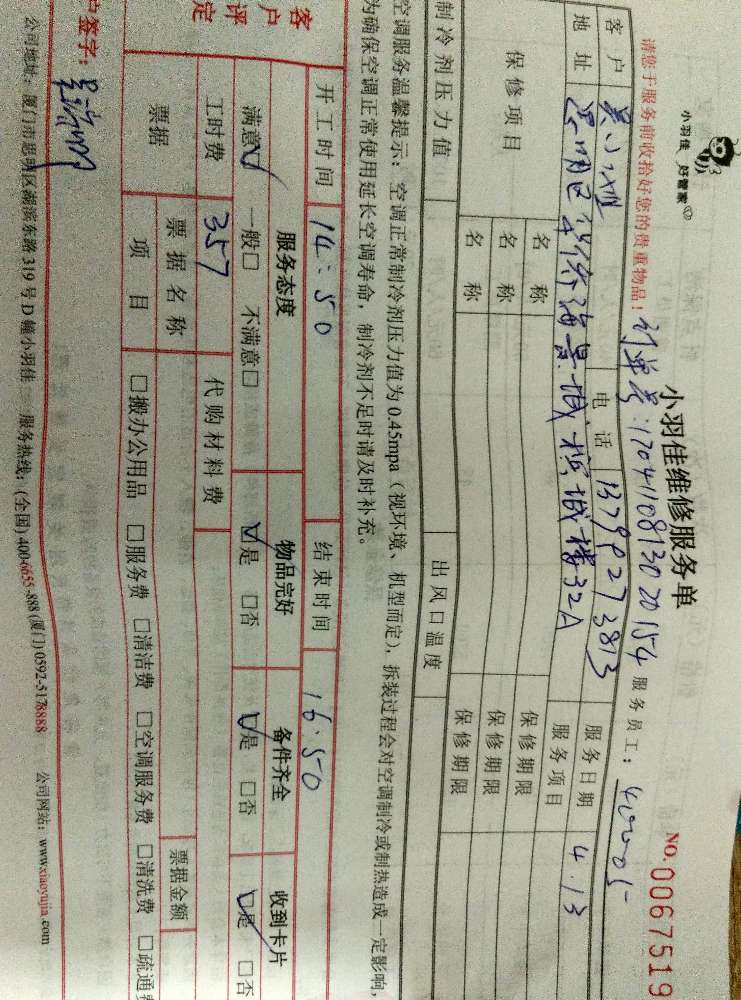 小羽佳 好管家
小羽佳维修服务单
NO.0067519
请您于服务前收拾好您的贵重物品！
订单号:1704110813020154 服务员工:
客户 电话 13799273813 服务日期 4.13
地址 海景城 城楼32A 服务项目
保修项目 名称 保修期限
名称 保修期限
名称 保修期限
制冷剂压力值 出风口温度
空调服务温馨提示：空调正常制冷剂压力值为0.45mpa（视环境、机型而定），拆装过程会对空调制冷或制热造成一定影响，
为确保空调正常使用延长空调寿命，制冷剂不足时请及时补充。
开工时间 14:50 结束时间 16:50
客户评定 服务态度 物品完好 备件齐全 收到卡片
满意☑ 一般□ 不满意□ ☑是 □否 ☑是 □否 ☑是 □否
工时费 357 代购材料费
票据 票据名称 票据金额
项目 □搬办公用品 □服务费 □清洁费 □空调服务费 □清洗费 □疏通
户签字:
公司地址：厦门市思明区湖滨东路319号D幢小羽佳 服务热线：(全国) 400-6655-888 (厦门) 0592-5178888 公司网站：www.xiaoyujia.com